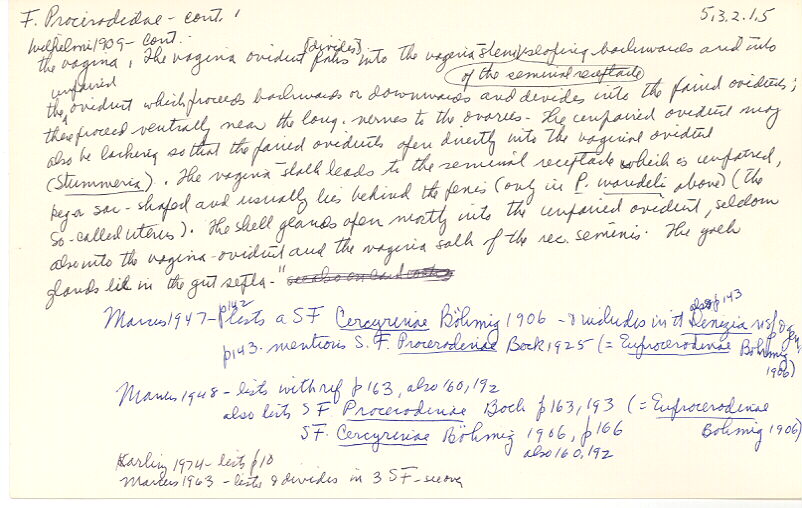 F. Procerodidae - cont.
5.3.2.1.5
Wilhelmi 1909 - cont.
the vagina. The vagina oviduct [divides] into the vagina stem, sloping backwards and into
of the seminal receptacle
unpaired
the oviduct which proceeds backwards or downwards and divides into the paired oviducts;
these proceed ventrally near the long. nerves to the ovaries. The unpaired oviduct may
also be lacking so that the paired oviducts open directly into the vaginal oviduct
(Stummeria). The vagina stalk leads to the seminal receptacle which is unpaired,
sac-shaped and usually lies behind the penis (only in P. wandeli above) (the
so-called uterus). The shell glands open mostly into the unpaired oviduct, seldom
also into the vagina-oviduct and the vagina stalk of the rec. seminis. The yolk
glands lie in the gut septa."
Marcus 1947 - p142 lists a SF Cercyrinae Böhmig 1906 - & includes in it also p143 nsp & gen,
p143 - mentions S.F. Procerodinae Bock 1925 (= Euprocerodinae Böhmig
1906)
Marcus 1948 - lists with ref p163, also 160, 192
also lists SF Procerodinae Bock p163, 193 (= Euprocerodinae
Böhmig 1906)
SF. Cercyrinae Böhmig 1906, p166
also 160, 192
Karling 1974 - lists p10
Marcus 1963 - lists & divides in 3 SF - see over